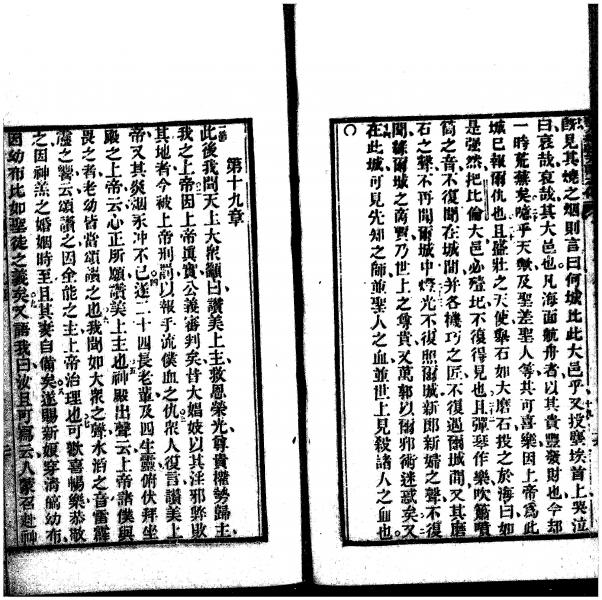 所見其燒之烟則言曰何城比此大邑乎又投塵埃首上哭泣
曰哀哉哀哉其大邑也凡海面航舟者以其貴豐發財也今却
一時荒蕪矣噫乎天與及聖差聖人等共可喜樂因上帝爲此
城已報爾仇也且盛壯之天使舉石如大磨石投之於海曰如
是強然把比倫大邑必殪圯不復得見也且彈琴作樂吹簫嘖
筒之音不復聞在城間并各機巧之匠不復遇爾城間又其磨
石之聲不再聞爾城中燈光不復照爾城新郎新婦之聲不復
聞緣爾城之商賈乃世上之尊貴又萬郭以爾邪術迷惑矣又
在此城可見先知之師並聖人之血並世上見殺諸人之血也
第十九章
此後我聞天上大衆籲曰讚美上主救恩榮光尊貴權勢歸主
我之上帝因上帝眞實公義審判矣皆大娼妓以其淫邪弊敗
其地者今被上帝刑罰以報乎流僕血之仇衆人復言讚美上
帝又其炎烟永冲不已遂二十四長老輩及四生靈俯伏拜坐
殿之上帝云心正所願讚美上主也神殿出聲云上帝諸僕與
畏之者老幼皆當頌讚之也我聞如大衆之聲水滔之音雷霹
之聲云頌讚之因全能之主上帝治理也可歡喜暢樂恭敬
之因神羔之婚姻時至且其妻自備矣遂賜新娘穿淸縞幼布
因幼布比如聖徒之義矣又語我曰汝且可寫云人蒙召赴神